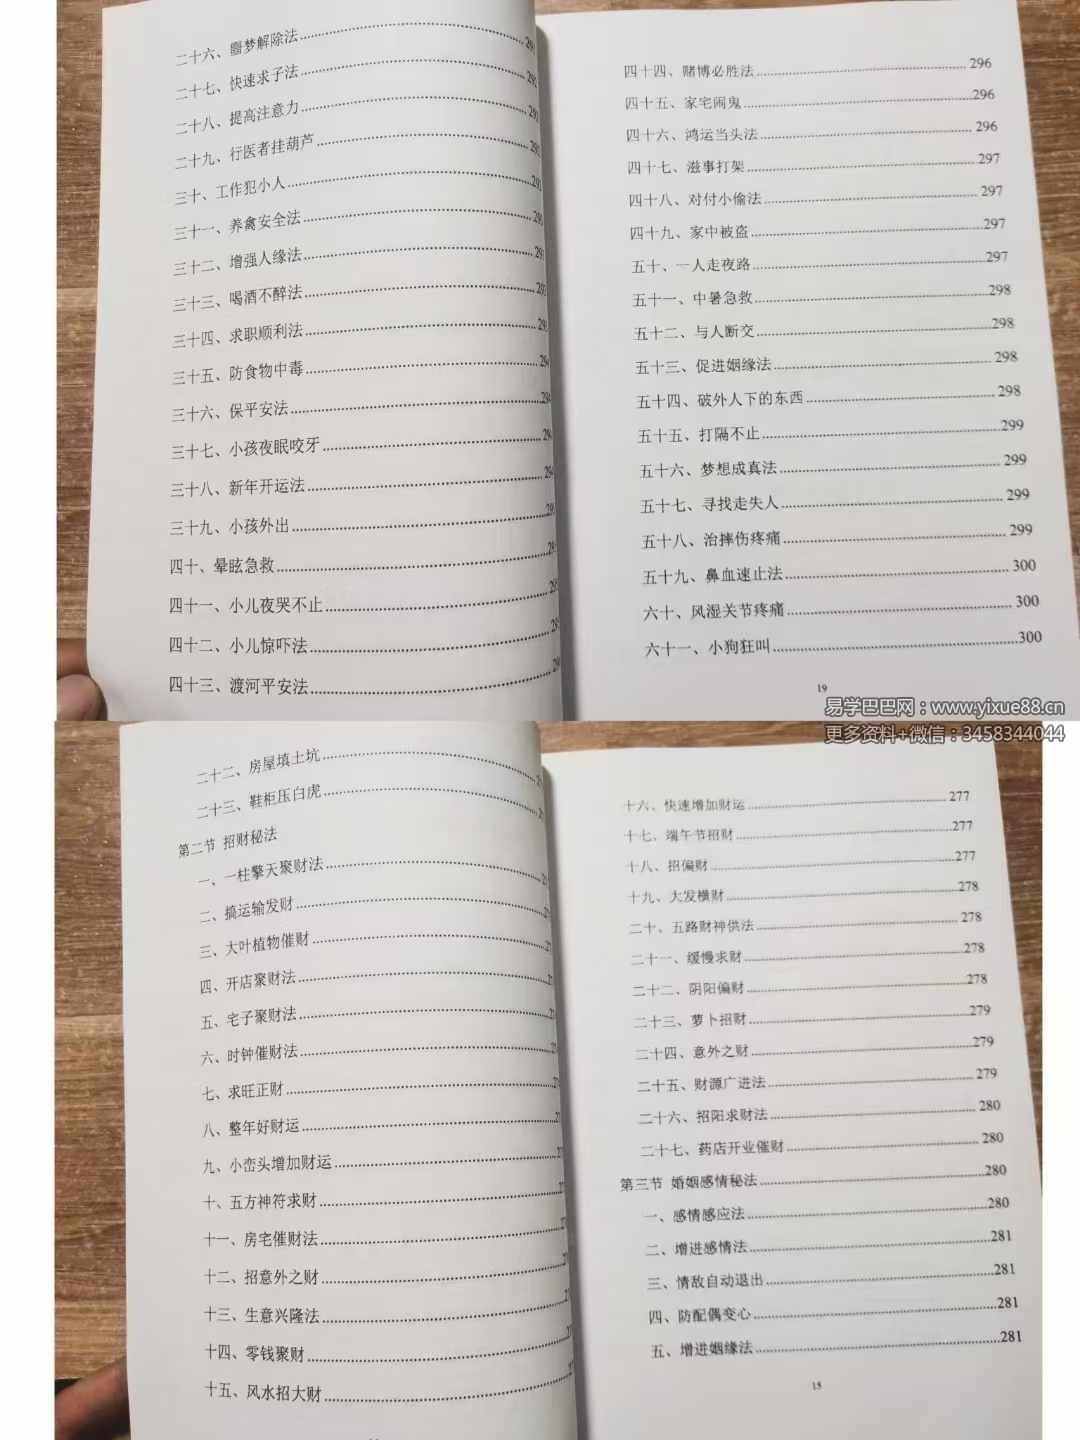 二十六、噩梦解除法
二十七、快速求子法
二十八、提高注意力
二十九、行医者挂葫芦
三十、工作犯小人
三十一、养禽安全法
三十二、增强人缘法
三十三、喝酒不醉法
三十四、求职顺利法
三十五、防食物中毒
三十六、保平安法
三十七、小孩夜眠咬牙
三十八、新年开运法
三十九、小孩外出
四十、晕眩急救
四十一、小儿夜哭不止
四十二、小儿惊吓法
四十三、渡河平安法
四十四、赌博必胜法 296
四十五、家宅闹鬼 296
四十六、鸿运当头法 296
四十七、滋事打架 297
四十八、对付小偷法 297
四十九、家中被盗 297
五十、一人走夜路 297
五十一、中暑急救 298
五十二、与人断交 298
五十三、促进姻缘法 298
五十四、破外人下的东西 298
五十五、打隔不止 299
五十六、梦想成真法 299
五十七、寻找走失人 299
五十八、治摔伤疼痛 299
五十九、鼻血速止法 300
六十、风湿关节疼痛 300
六十一、小狗狂叫 300
19
易学巴巴网：www.yixue88.cn
更多资料+微信：3458344044
二十二、房屋填土坑
二十三、鞋柜压白虎
第二节 招财秘法
一、一柱擎天聚财法
二、搞运输发财
三、大叶植物催财
四、开店聚财法
五、宅子聚财法
六、时钟催财法
七、求旺正财
八、整年好财运
九、小峦头增加财运
十、五方神符求财
十一、房宅催财法
十二、招意外之财
十三、生意兴隆法
十四、零钱聚财
十五、风水招大财
十六、快速增加财运 277
十七、端午节招财 277
十八、招偏财 277
十九、大发横财 278
二十、五路财神供法 278
二十一、缓慢求财 278
二十二、阴阳偏财 278
二十三、萝卜招财 279
二十四、意外之财 279
二十五、财源广进法 279
二十六、招阳求财法 280
二十七、药店开业催财 280
第三节 婚姻感情秘法 280
一、感情感应法 280
二、增进感情法 281
三、情敌自动退出 281
四、防配偶变心 281
五、增进姻缘法 281